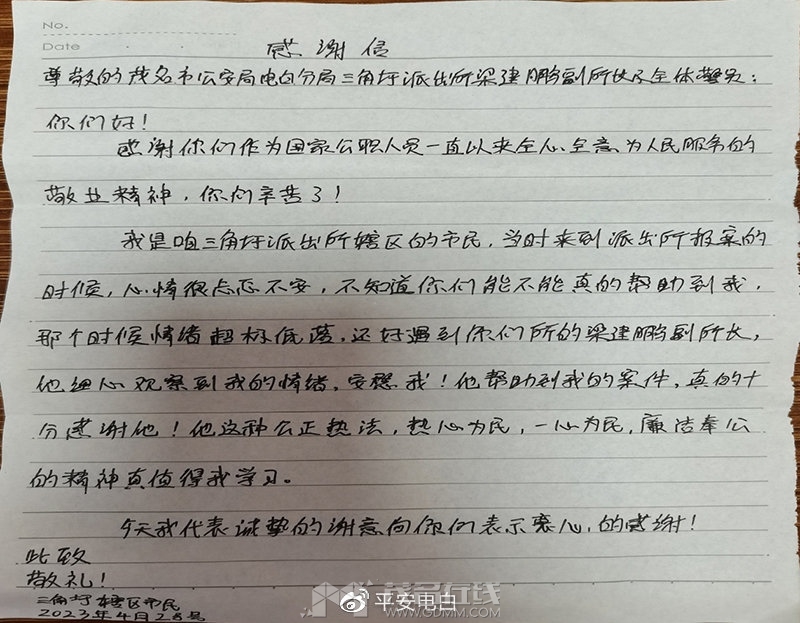 No.
Date
感谢信
尊敬的茂名市公安局电白分局三角圩派出所梁建鹏副所长及全体警员：
你们好！
感谢你们作为国家公职人员一直以来全心全意为人民服务的
敬业精神，你们辛苦了！
我是咱三角圩派出所辖区的市民，当时来到派出所报案的
时候，心情很忐忑不安，不知道你们能不能真的帮助到我，
那个时候情绪超标低落，还好遇到你们所的梁建鹏副所长，
他细心观察到我的情绪，安稳我！他帮助到我的案件，真的十
分感谢他！他这种公正热法，热心为民，一心为民，廉洁奉公
的精神真值得我学习。
今天我代表诚挚的谢意向你们表示衷心的感谢！
此致
敬礼！
三角圩辖区市民
2023年4月28号
茂名在线
WWW.GDMM.COM
平安电白